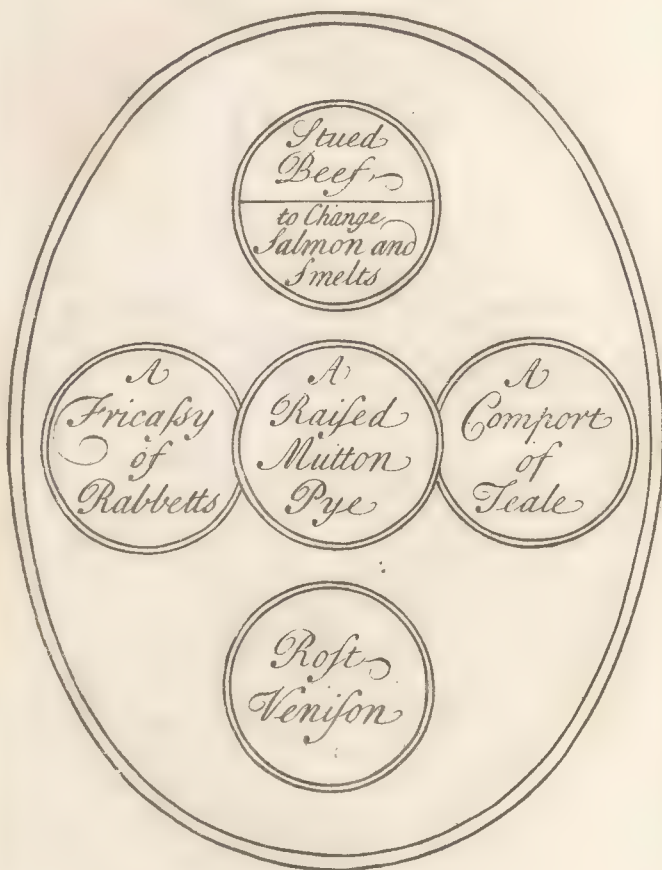 Stued
Beef
to Change
Salmon and
Smelts
A
Fricaſsy
of
Rabbetts
A
Raiſed
Mutton
Pye
A
Comport
of
Teale
Roſt
Veniſon